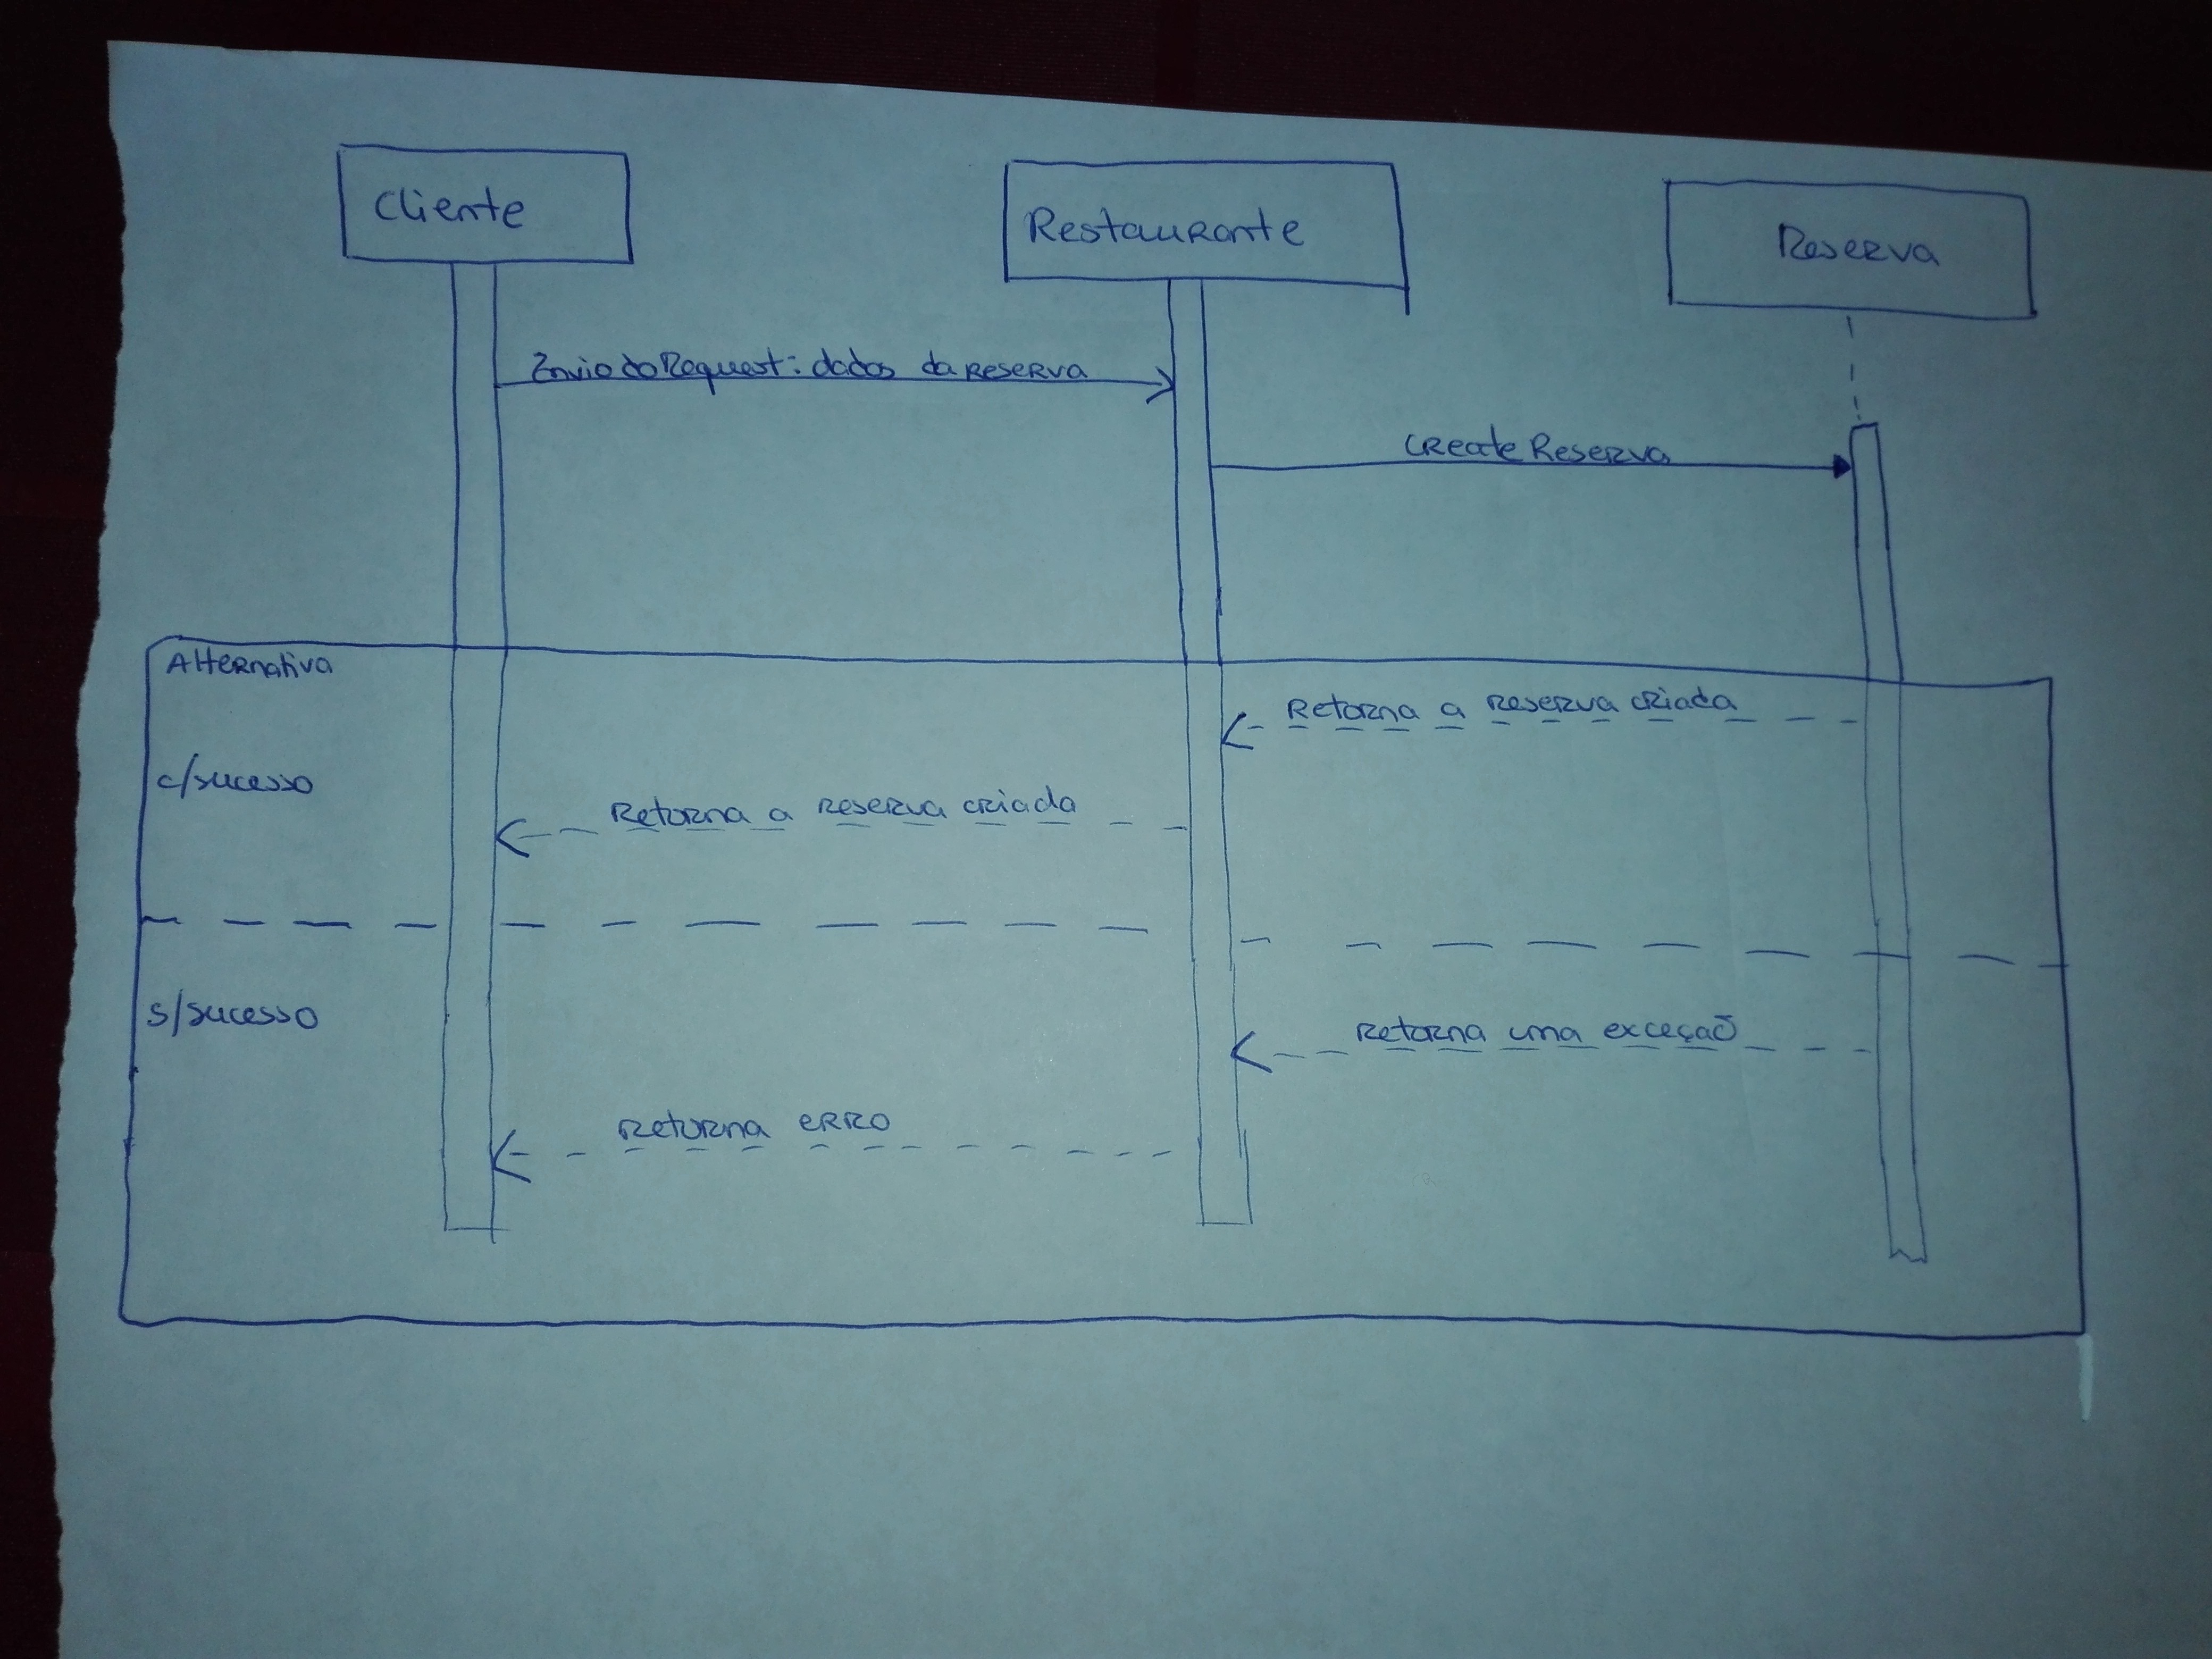 Cliente
Restaurante
Reserva
Envio do Request: dados da reserva
Create Reserva
Alternativa
Retorna a reserva criada
c/sucesso
Retorna a reserva criada
s/sucesso
Retorna uma exceção
Retorna erro